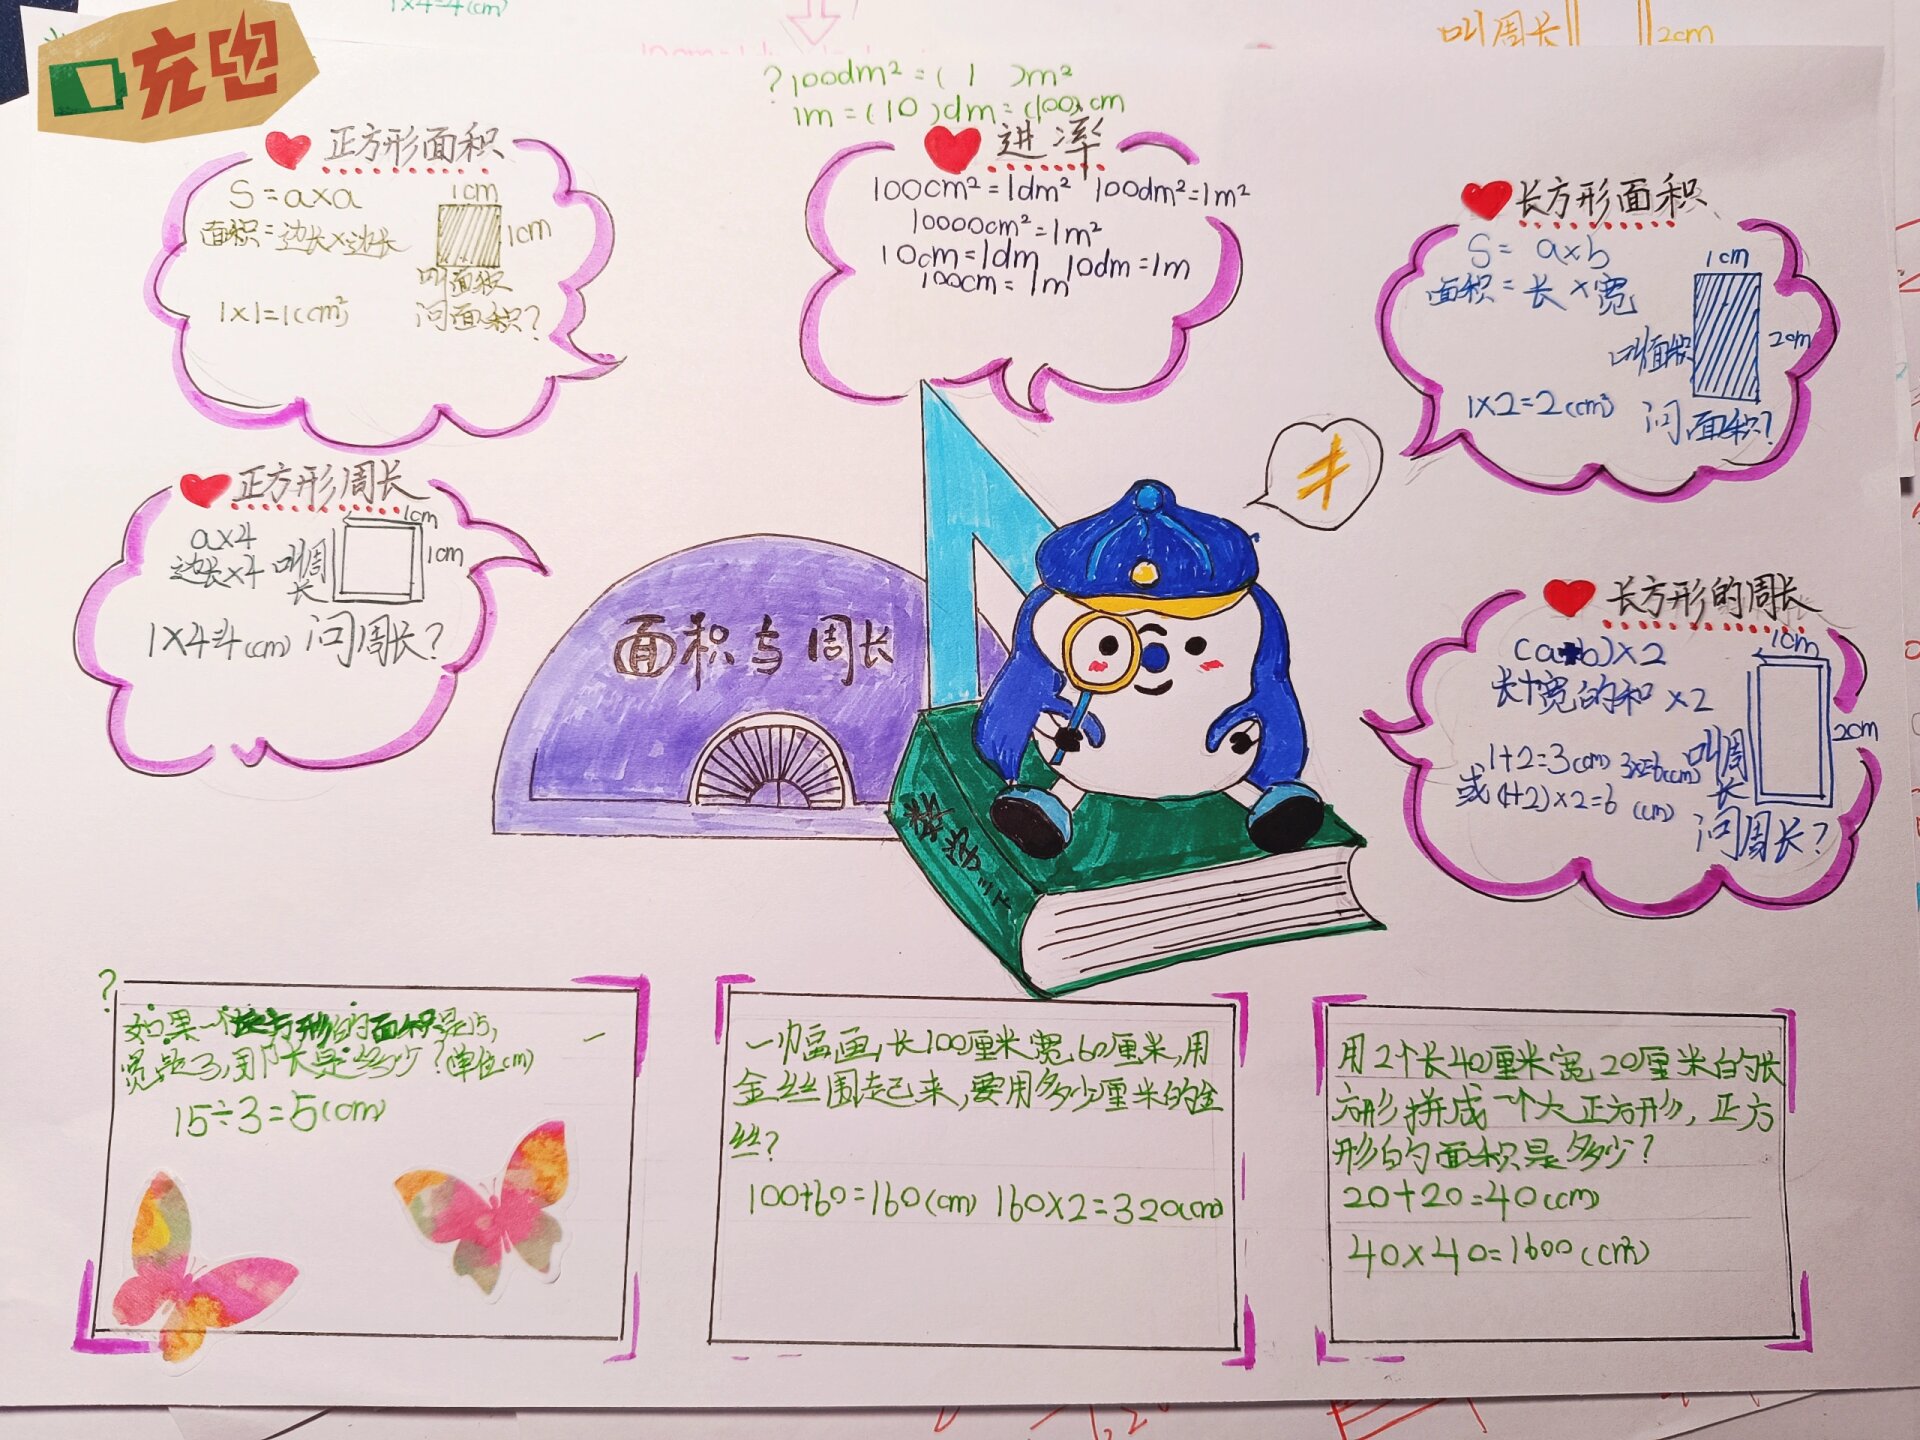 充电
1×4=4(cm)
叫周长
2cm
?100dm²=( 1 )m²
1m=(10)dm=(100)cm
正方形面积
S=a×a
面积=边长×边长
1cm
1cm
叫面积
1×1=1(cm²)
问面积?
进率
100cm²=1dm² 100dm²=1m²
10000cm²=1m²
10cm=1dm 10dm=1m
100cm=1m
长方形面积
S= a×b
面积=长×宽
1cm
2cm
叫面积
1×2=2(cm²)
问面积?
正方形周长
a×4
边长×4
叫周长
1cm
1cm
1×4=4(cm) 问周长?
面积与周长
长方形的周长
(a+b)×2
长+宽的和×2
1cm
2cm
1+2=3(cm) 3×2=6(cm)
或(1+2)×2=6 (cm)
叫周长
问周长?
?
如果一个长方形的面积是15,
宽是3,周长是多少?(单位cm)
15÷3=5(cm)
一幅画,长100厘米宽60厘米,用
金丝围起来,要用多少厘米的金
丝?
100+60=160(cm) 160×2=320(cm)
用2个长40厘米宽20厘米的长
方形拼成一个大正方形,正方
形的面积是多少?
20+20=40(cm)
40×40=1600(cm²)